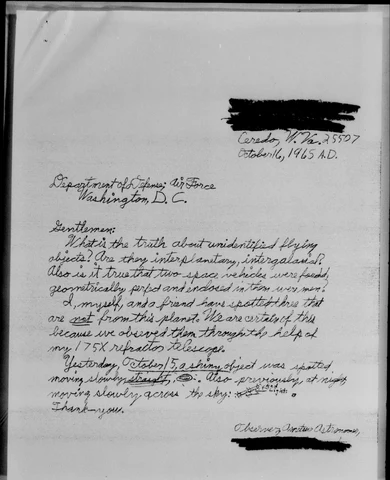 Ceredo, W. Va. 25507
October 16, 1965 A.D.
Department of Defense; Air Force
Washington, D. C.
Gentlemen:
What is the truth about unidentified flying
objects? Are they interplanetary, intergalaxial?
Also is it true that two space vehicles were found,
geometrically perfect and enclosed in them were men?
I, myself, and a friend have spotted three that
are not from this planet. We are certain of this
because we observed them through the help of
my 175X refractor telescope.
Yesterday, October 15, a shiny object was spotted
moving slowly straight, Also previously, at night,
moving slowly across the sky:
Thank-you.
Observer, Amateur Astronomer,